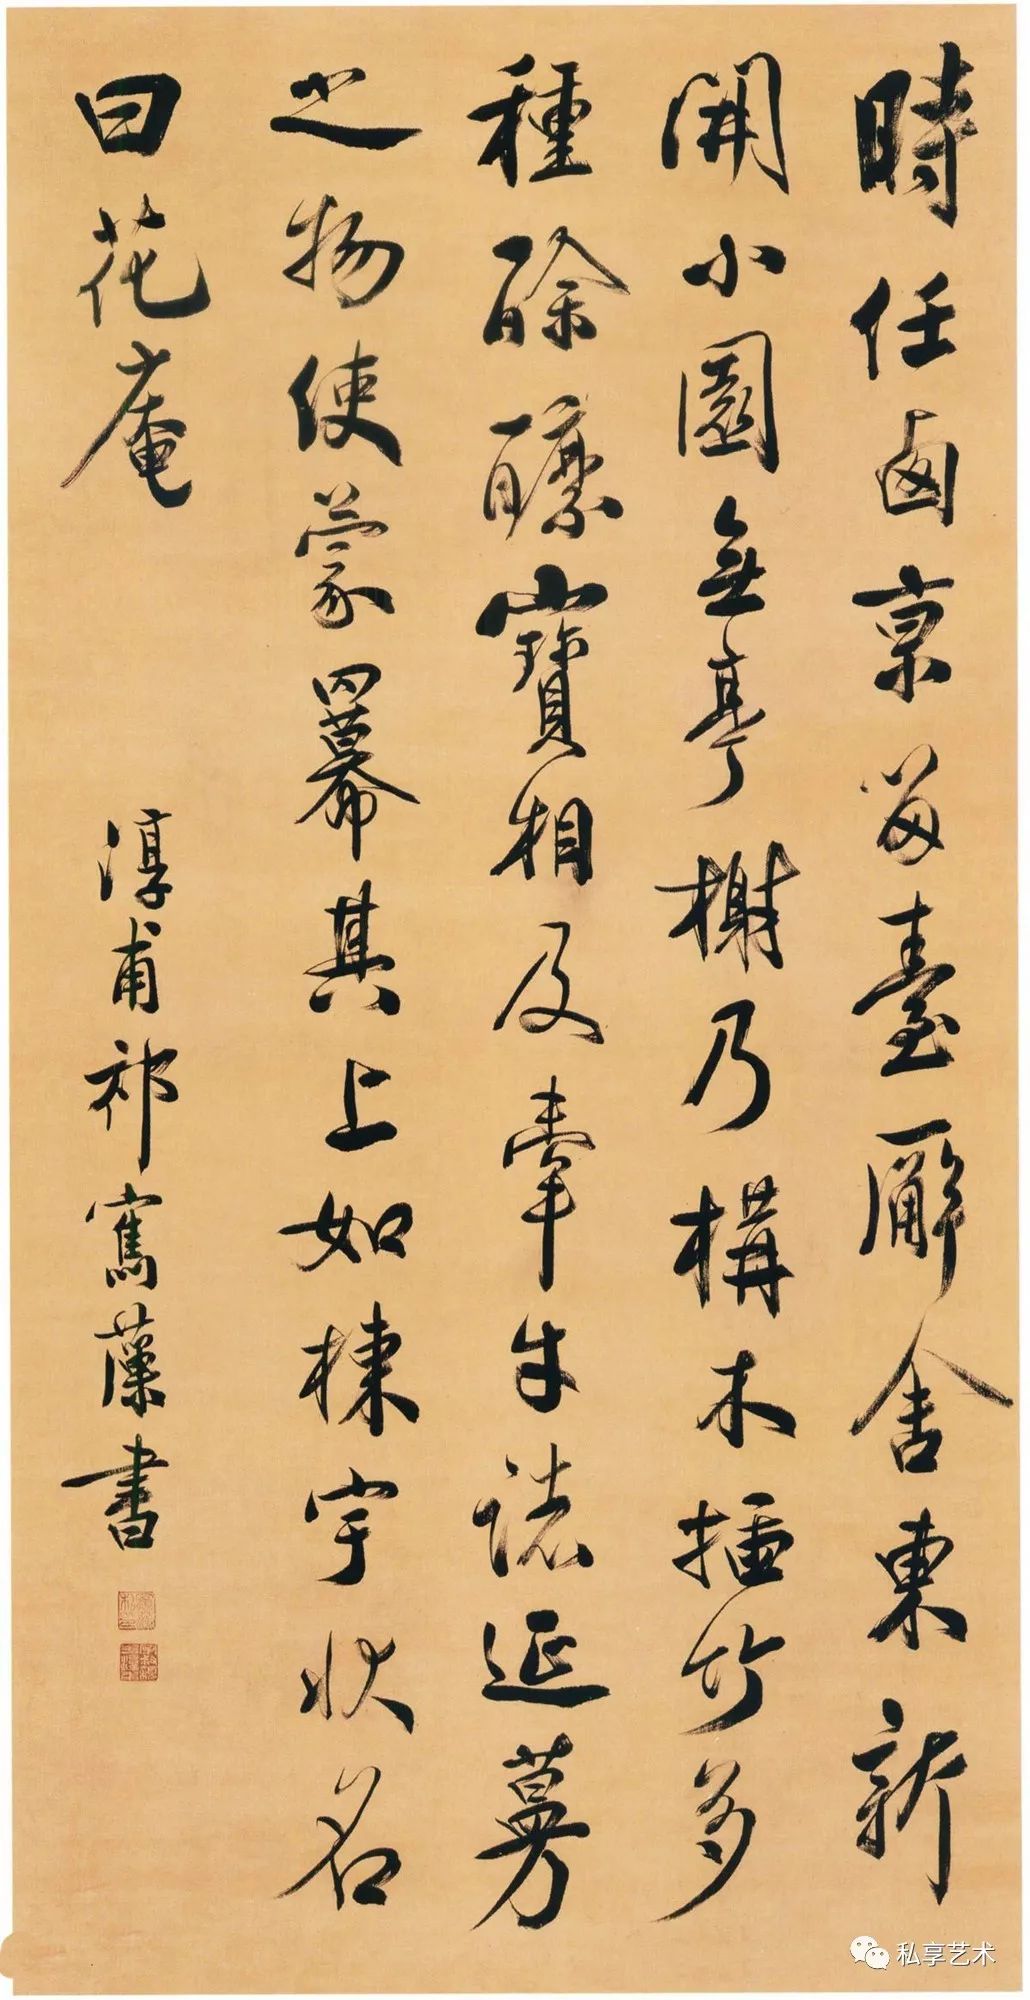 時任卥京留臺廨舍東新
開小園無亭榭乃構木插竹多
種酴醾寶相及牽牛諸延蔓
之物使蒙羃其上如棟宇狀名
曰花庵
淳甫祁寯藻書
私享艺术